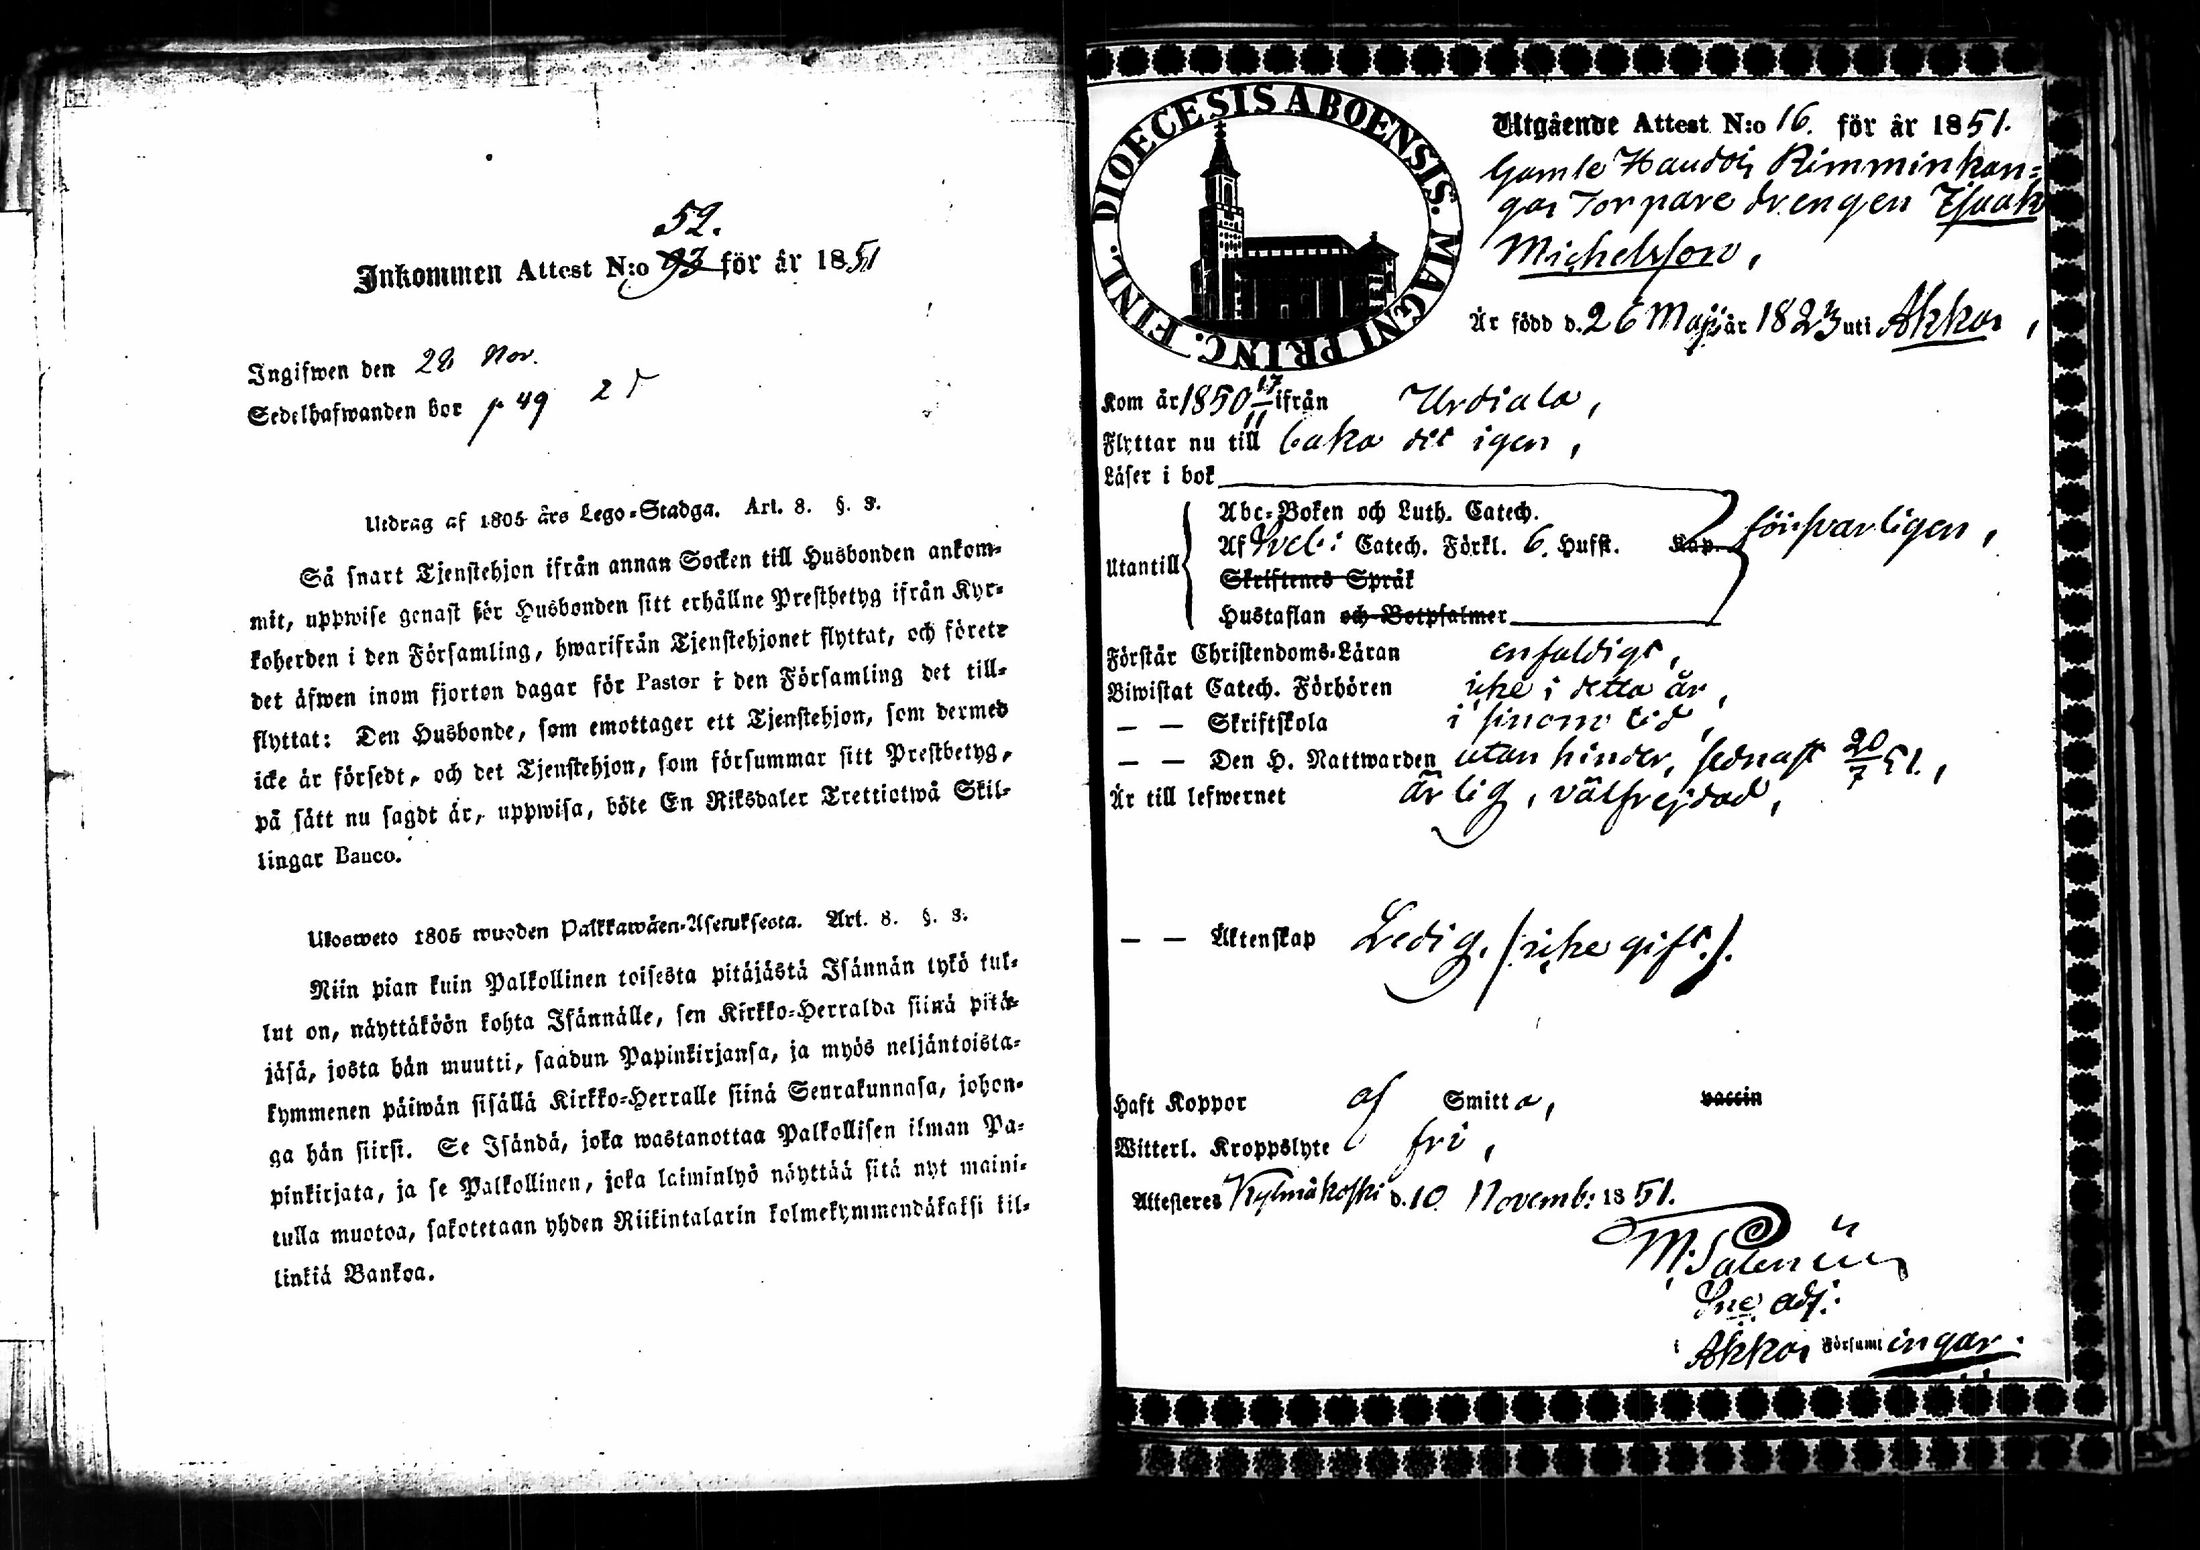 52.
Inkommen Attest N:o 93 för år 1851
Ingifwen den 28 Nov.
Sedelhafwanden bor p 49
Utdrag af 1805 års Lego-Stadga. Art. 8. §. 3.
Så snart Tjenstehjon ifrån annan Socken till Husbonden ankom-
mit, uppwise genast för Husbonden sitt erhållne Prestbetyg ifrån Kyr-
koherden i den Församling, hwarifrån Tjenstehjonet flyttat, och förete
det äfwen inom fjorton dagar för Pastor i den Församling det till-
flyttat: Den Husbonde, som emottager ett Tjenstehjon, som dermed
icke är försedt, och det Tjenstehjon, som försummar sitt Prestbetyg,
på sätt nu sagdt är, uppwisa, böte En Riksdaler Trettiotwå Skil-
lingar Banco.
Ulosweto 1805 wuoden Palkkawäen-Asetuksesta. Art. 8. §. 3.
Niin pian kuin Palkollinen toisesta pitäjästä Isännän tykö tul-
lut on, näyttäköön kohta Isännälle, sen Kirkko-Herralda siinä pitä-
jäsä, josta hän muutti, saadun Papinkirjansa, ja myös neljäntoista-
kymmenen päiwän sisällä Kirkko-Herralle siinä Seurakunnasa, johon-
ga hän siirsi. Se Isändä, joka wastanottaa Palkollisen ilman Pa-
pinkirjata, ja se Palkollinen, joka laiminlyö näyttää sitä nyt maini-
tulla muotoa, sakotetaan yhden Riikintalarin kolmekymmendäkaksi kil-
linkiä Bankoa.
DIOECESIS ABOENSIS. MAGNI PRINC. FINL.
Utgående Attest N:o 16. för år 1851.
Gamle Haudois Rimminkan-
gas Torpare drengen Isaak
Michelsson,
Är född d. 26 Maji år 1823 uti Akkas,
Kom år 1850 17/11 ifrån Urdiala,
Flyttar nu till baka dit igen,
Läser i bok
Abc-Boken och Luth. Catech.
Af Sveb: Catech. Förkl. 6. Hufst. Kap. försvarligen,
Utantill
Skriftenes Språk
Hustaflan och Botpsalmer
Förstår Christendoms-Läran enfaldigt,
Biwistat Catech. Förhören icke i detta år,
— — Skriftskola i sinom tid,
— — Den H. Nattwarden utan hinder, sednast 20/7 51.,
Är till lefwernet ärlig, välfrejdad,
— — Äktenskap Ledig. (icke gift.).
Haft Koppor af Smitta, vaccin
Witterl. Kroppslyte fri,
Attesteras Kylmäkoski d. 10 Novemb: 1851.
M: Salenius
adj:
i Akkas Församlingar.